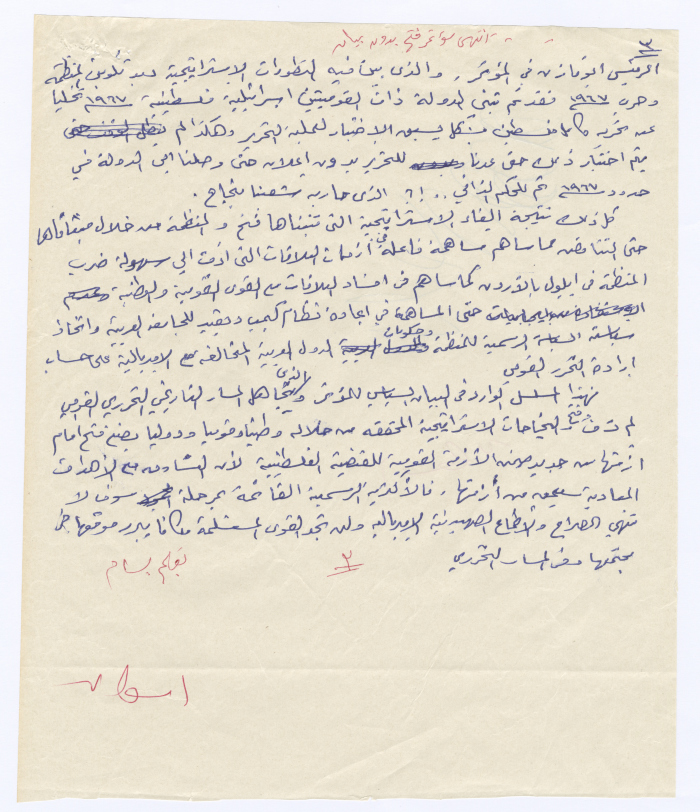 - انتهى مؤتمر فتح بدون بيان
٣
الرئيس ابو مازن في المؤتمر، والذي بين فيه التطورات الاستراتيجية بعد تكوين المنظمة
وحرب ١٩٦٧ فقد تم تبني لدولة ذات القوميتين اسرائيلية فلسطينية ١٩٦٧ تخليا
عن تحرير كامل فلسطين يسبق الاختبار لعملية التحرير وهكذا لم
يتم اختبار ذلك حتى عدنا للتحرير بدون إعلان حتى وصلنا الى الدولة في
حدود ١٩٦٧ ثم للحكم الذاتي ..!؟ الذي حاربه شعبنا بنجاح.
كل ذلك نتيجة الغاء الاستراتيجية التي تتبناها فتح والمنظمة من خلال ميثاقها
حتى التناقض مما ساهم مساهمة فاعلة في أزمات العلاقات التي أدت الى سهولة ضرب
المنظمة في ايلول بالأردن كما ساهم في افساد العلاقات مع القوى القومية والوطنية
حتى المساهمة في اعادة نظام كامب ديفيد للجامعة العربية واتخاذ
سياسة السياسة الرسمية للمنظمة وحكومات الدول العربية المتحالفة مع الامبريالية على حساب
ارادة التحرر القومي
بهذا المسلسل الوارد في البيان السياسي للمؤتمر والذي يتجاهل المسار التاريخي التحرري القومي
لم تترك فتح والنجاحات الاستراتيجية المحققة من خلاله وطنيا وقوميا ودوليا يضع فتح امام
أزمتها من جديد ضمن الأزمة القومية للقضية الفلسطينية لأن التساوق مع الأهداف
المعادية سيعمق من أزمتها، فالأكثرية الرسمية القائمة بمرحلة سوف لا
تنهي الصراع والأطماع الصهيونية الامبريالية ولن تجد القوى المستسلمة مكانا يبرر موقعها في
مجتمعها وفي المسار التحرري
٣
بقلم بسام